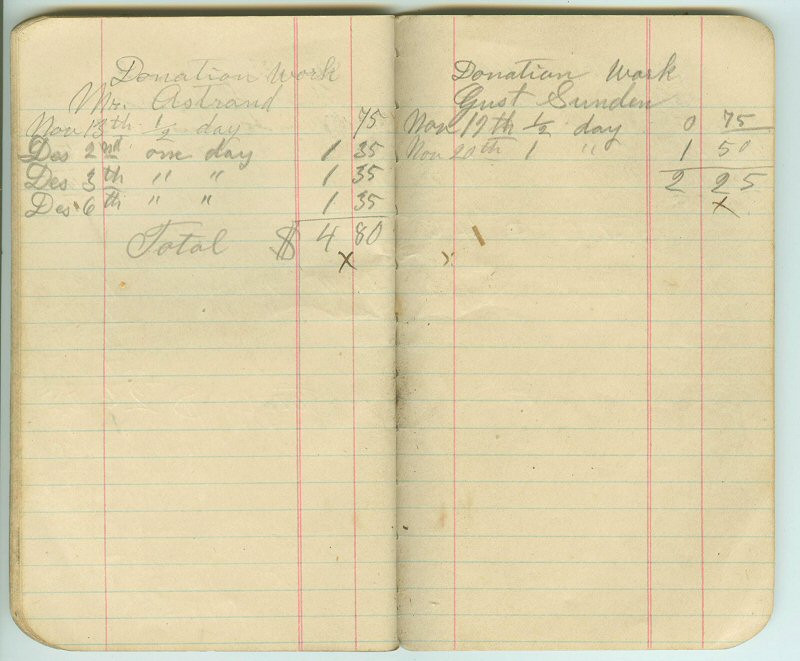 Donation Work
Mr. Astrand
Nov 13th 1/2 day 75
Des 2nd one day 1 35
Des 3th " " 1 35
Des 6th " " 1 35
Total $ 4 80
x
Donation Work
Gust Sunden
Nov 17th 1/2 day 0 75
Nov 20th 1 " 1 50
2 25
x